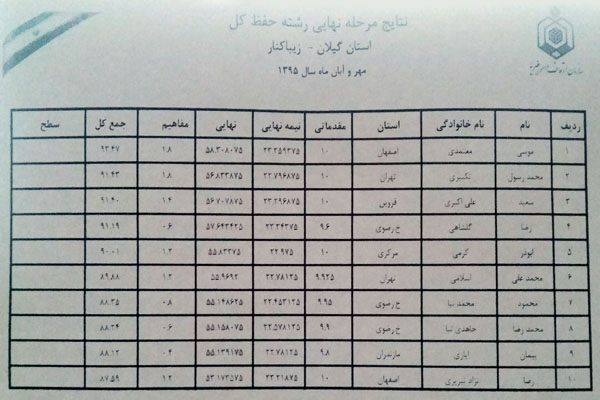 نتایج مرحله نهایی رشته حفظ کل
استان گیلان - زیباکنار
مهر و آبان ماه سال ۱۳۹۵
ردیف نام نام خانوادگی استان مقدماتی نیمه نهایی نهایی مفاهیم جمع کل سطح
۱ موسی معتمدی اصفهان ۱۰ ۲۳.۳۵۹۳۷۵ ۵۸.۳۰۸۰۷۵ ۱.۸ ۹۳.۴۷
۲ محمد رسول تکبیری تهران ۱۰ ۲۲.۷۹۶۸۷۵ ۵۶.۸۳۳۸۷۵ ۱.۸ ۹۱.۴۳
۳ سعید علی اکبری قزوین ۱۰ ۲۳.۲۹۶۸۷۵ ۵۶.۷۰۷۸۷۵ ۱.۴ ۹۱.۴۰
۴ رضا گلشاهی خ.رضوی ۹.۶ ۲۳.۳۴۳۷۵ ۵۷.۶۴۳۴۲۵ ۰.۶ ۹۱.۱۹
۵ ابوذر کرمی مرکزی ۱۰ ۲۲.۹۷۵ ۵۵.۸۳۳۷۵ ۱.۲ ۹۰.۰۱
۶ محمد علی اسلامی تهران ۹.۹۲۵ ۲۲.۷۸۱۲۵ ۵۵.۹۶۹۲ ۱.۲ ۸۹.۸۸
۷ محمود محمد نیا خ.رضوی ۹.۹۵ ۲۲.۴۵۳۱۲۵ ۵۵.۱۴۸۶۲۵ ۰.۸ ۸۸.۳۵
۸ محمد رضا جاهدی نیا خ.رضوی ۹.۹ ۲۲.۵۷۸۱۲۵ ۵۵.۱۵۸۰۷۵ ۰.۶ ۸۸.۲۴
۹ پیمان ایازی مازندران ۹.۸ ۲۲.۷۸۱۲۵ ۵۵.۱۳۹۱۷۵ ۰.۴ ۸۸.۱۲
۱۰ رضا اصفهان ۱۰ ۲۳.۲۱۸۷۵ ۵۳.۱۷۳۵۷۵ ۱.۲ ۸۷.۵۹